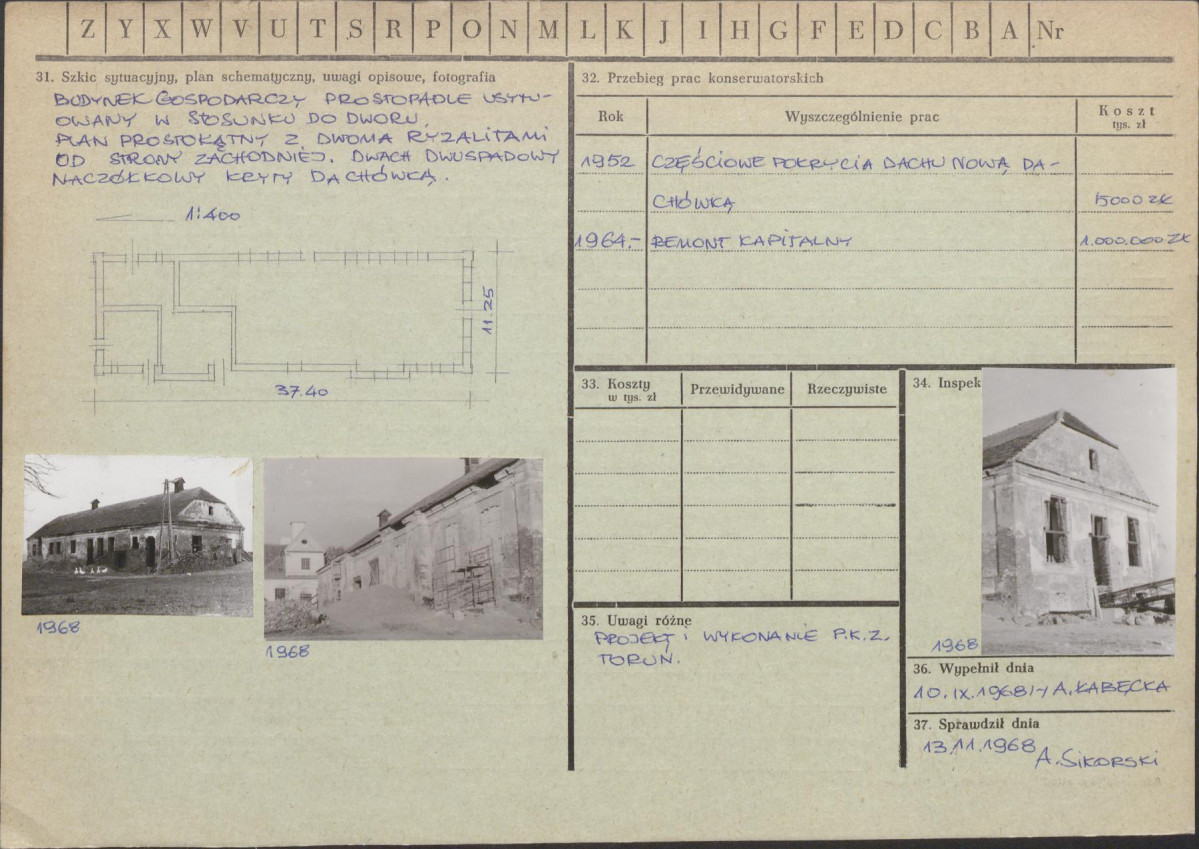 Z Y X W V U T S R P O N M L K J I H G F E D C B A Nr
31. Szkic sytuacyjny, plan schematyczny, uwagi opisowe, fotografia
BUDYNEK GOSPODARCZY PROSTOPADLE USYTU-
OWANY W STOSUNKU DO DWORU.
PLAN PROSTOKĄTNY Z DWOMA RYZALITAMI
OD STRONY ZACHODNIEJ. DWACH DWUSPADOWY
NACZÓŁKOWY KRYTY DACHÓWKĄ.
1:400
11.25
37.40
1968
1968
32. Przebieg prac konserwatorskich
Rok
Wyszczególnienie prac
Koszt
tys. zł
1952 CZĘŚCIOWE POKRYCIA DACHU NOWĄ DA-
CHÓWKĄ 15000 ZŁ
1964.- REMONT KAPITALNY 1.000.000 ZŁ
33. Koszty
w tys. zł
Przewidywane
Rzeczywiste
34. Inspek
1968
35. Uwagi różne
PROJEKT i WYKONANIE P.K.Z.
TORUŃ.
36. Wypełnił dnia
10.IX.1968/-/ A.ŁABĘCKA
37. Sprawdził dnia
13.11.1968
A. SIKORSKI